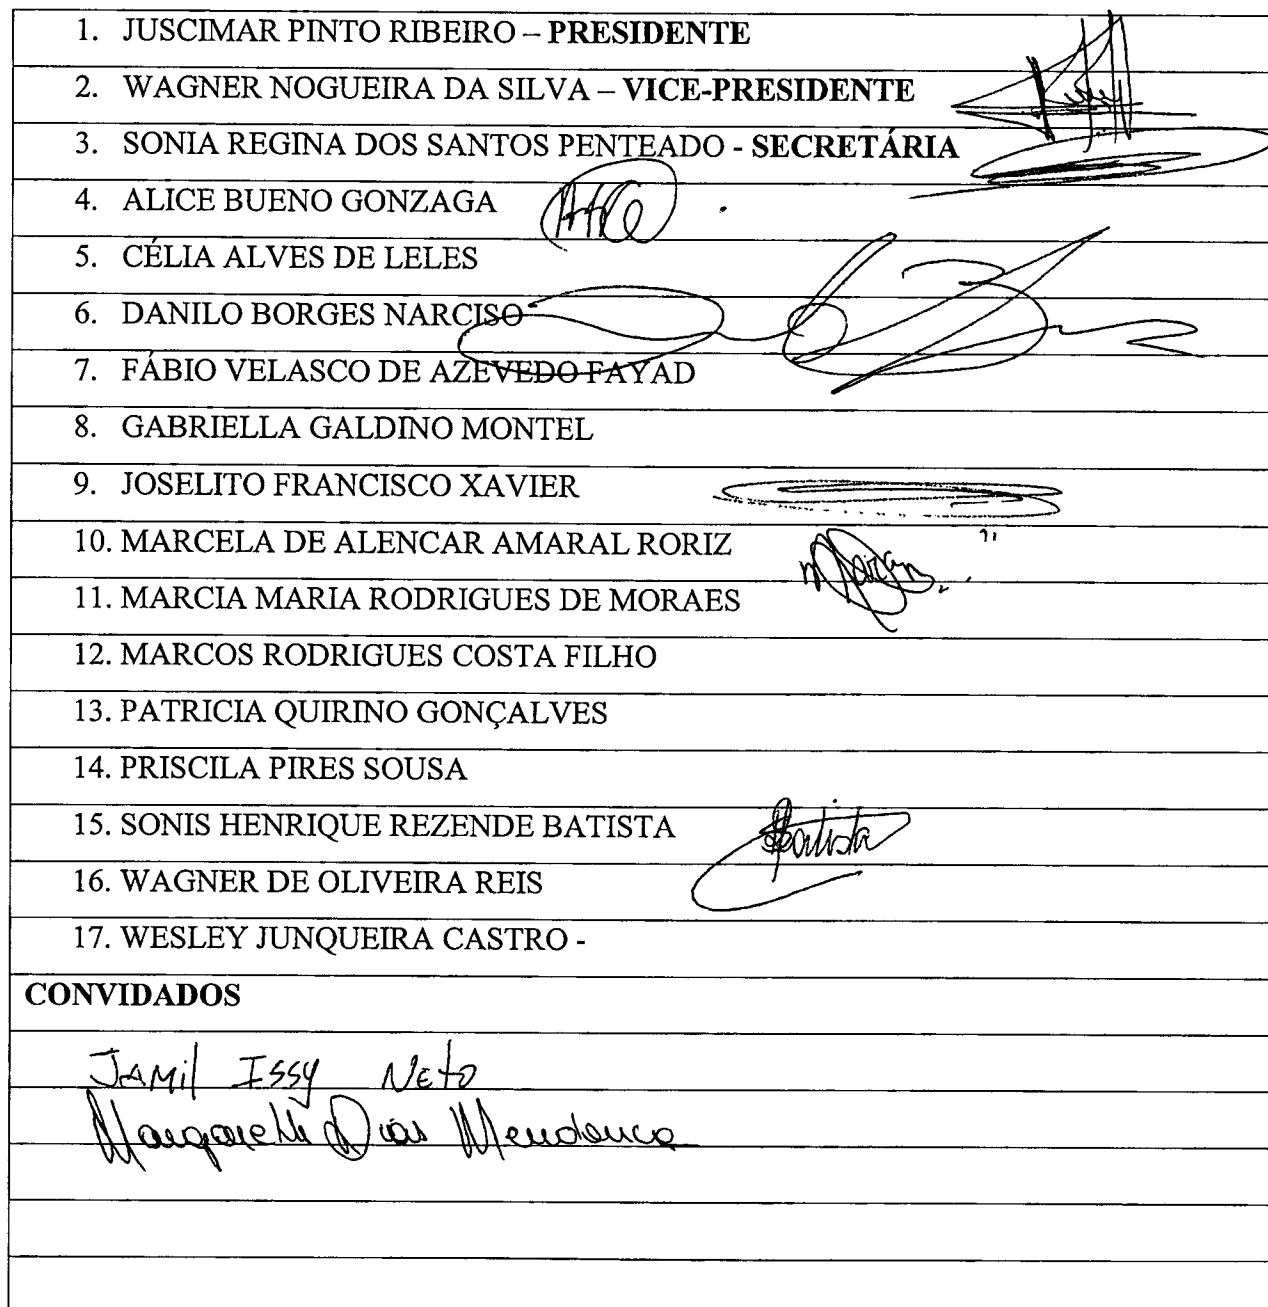 1. JUSCIMAR PINTO RIBEIRO – PRESIDENTE
2. WAGNER NOGUEIRA DA SILVA – VICE-PRESIDENTE
3. SONIA REGINA DOS SANTOS PENTEADO - SECRETÁRIA
4. ALICE BUENO GONZAGA
5. CÉLIA ALVES DE LELES
6. DANILO BORGES NARCISO
7. FÁBIO VELASCO DE AZEVEDO FAYAD
8. GABRIELLA GALDINO MONTEL
9. JOSELITO FRANCISCO XAVIER
10. MARCELA DE ALENCAR AMARAL RORIZ
11. MARCIA MARIA RODRIGUES DE MORAES
12. MARCOS RODRIGUES COSTA FILHO
13. PATRICIA QUIRINO GONÇALVES
14. PRISCILA PIRES SOUSA
15. SONIS HENRIQUE REZENDE BATISTA
Batista
16. WAGNER DE OLIVEIRA REIS
17. WESLEY JUNQUEIRA CASTRO -
CONVIDADOS
JAMil ISSY Neto
Margareth Dias Mendonca